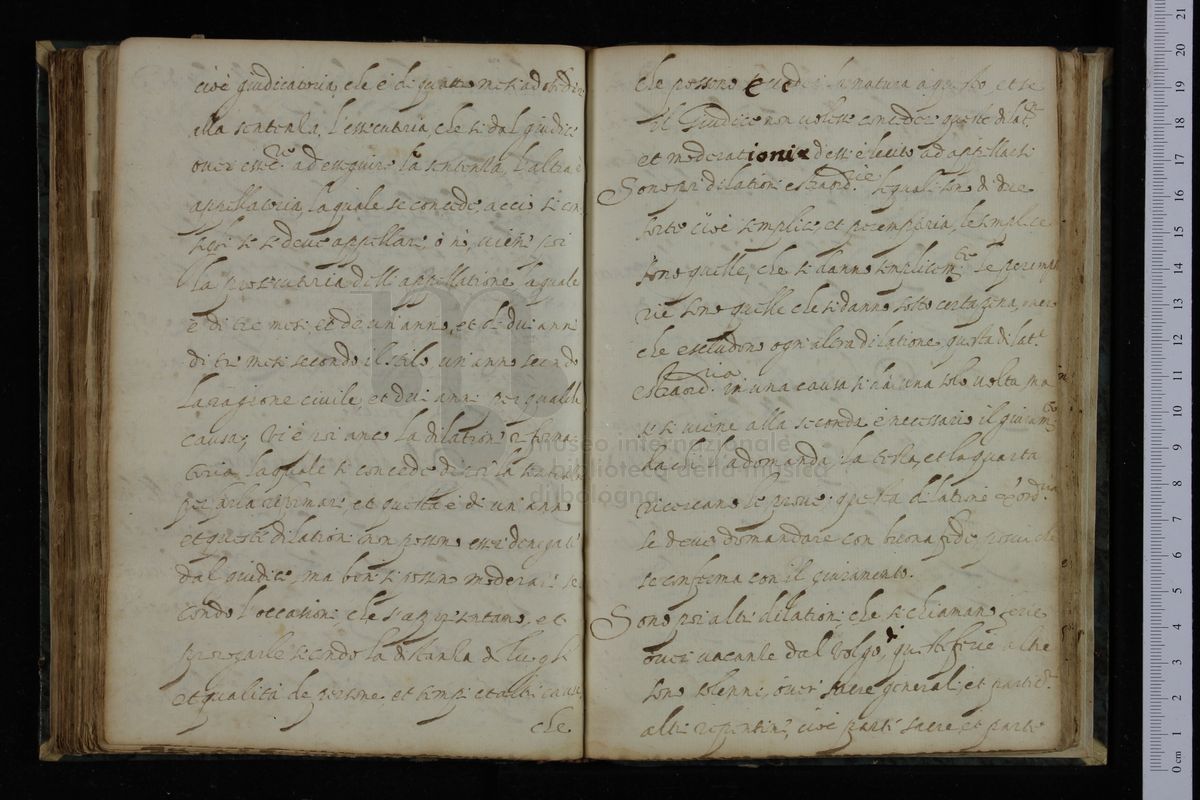 cioè giudicatoria, che è di quatro mesi ad obedire
alla sentenza, l'essecutoria, che si dal giudice
over ess.re ad esseguire la sentenza, l'altra è
appellatoria, la quale se concede, acciò si con
si si deve appellare, ò nò, viene poi
la prosecutoria dell'appellatione la quale
è di tre mesi, et de un anno, et di dui anni
di tre mesi secondo il stilo un anno secondo
la ragione civile, et dui anni per qualche
causa, vi è poi anco la dilatione reforma
toria, laquale si concede doppo la sentenza
per farla reformare, et questa è di un anno
et queste dilationi non possono esser denegate
dal giudice, ma ben si possono moderare se
condo l'occasioni che s'appresentano, et
prorogarle secondo la distanza di luoghi
et qualità de persone, et tempi et altre cause,
che
che possono la natura à questo et se
il Giudice non volesse concedere queste dilat.ni
et moderationi d'esse è lecito ad appellarsi
Sono poi dilationi estraord.rie le quali sono di due
sorte cioè semplice, et peremptoria, le semplice
sono quelle, che si danno semplicem.te le peremp
rie sono quelle che si danno sotto certa pena, over
che escludono ogn'altra dilatione questa dilat.ne
estraord.ria in una causa si dà una sol volta, ma
se si viene alla seconda è necessario il giuram.to
da chi si adomanda, la terza, et la quarta
ricercano le prove. questa dilatione extraord.ria
se deve domandare con buona fede, poiche
se conferma con il giuramento.
Sono poi altre dilationi che si chiamano ferie
over vacanze dal volgo, queste ferie altre
sono solenni, over sacre generali, et partic.ri
altre repentine, cioè parte sacre, et parte
museo internazionale
e biblioteca della musica
di bologna
0 cm 1 2 3 4 5 6 7 8 9 10 11 12 13 14 15 16 17 18 19 20 21